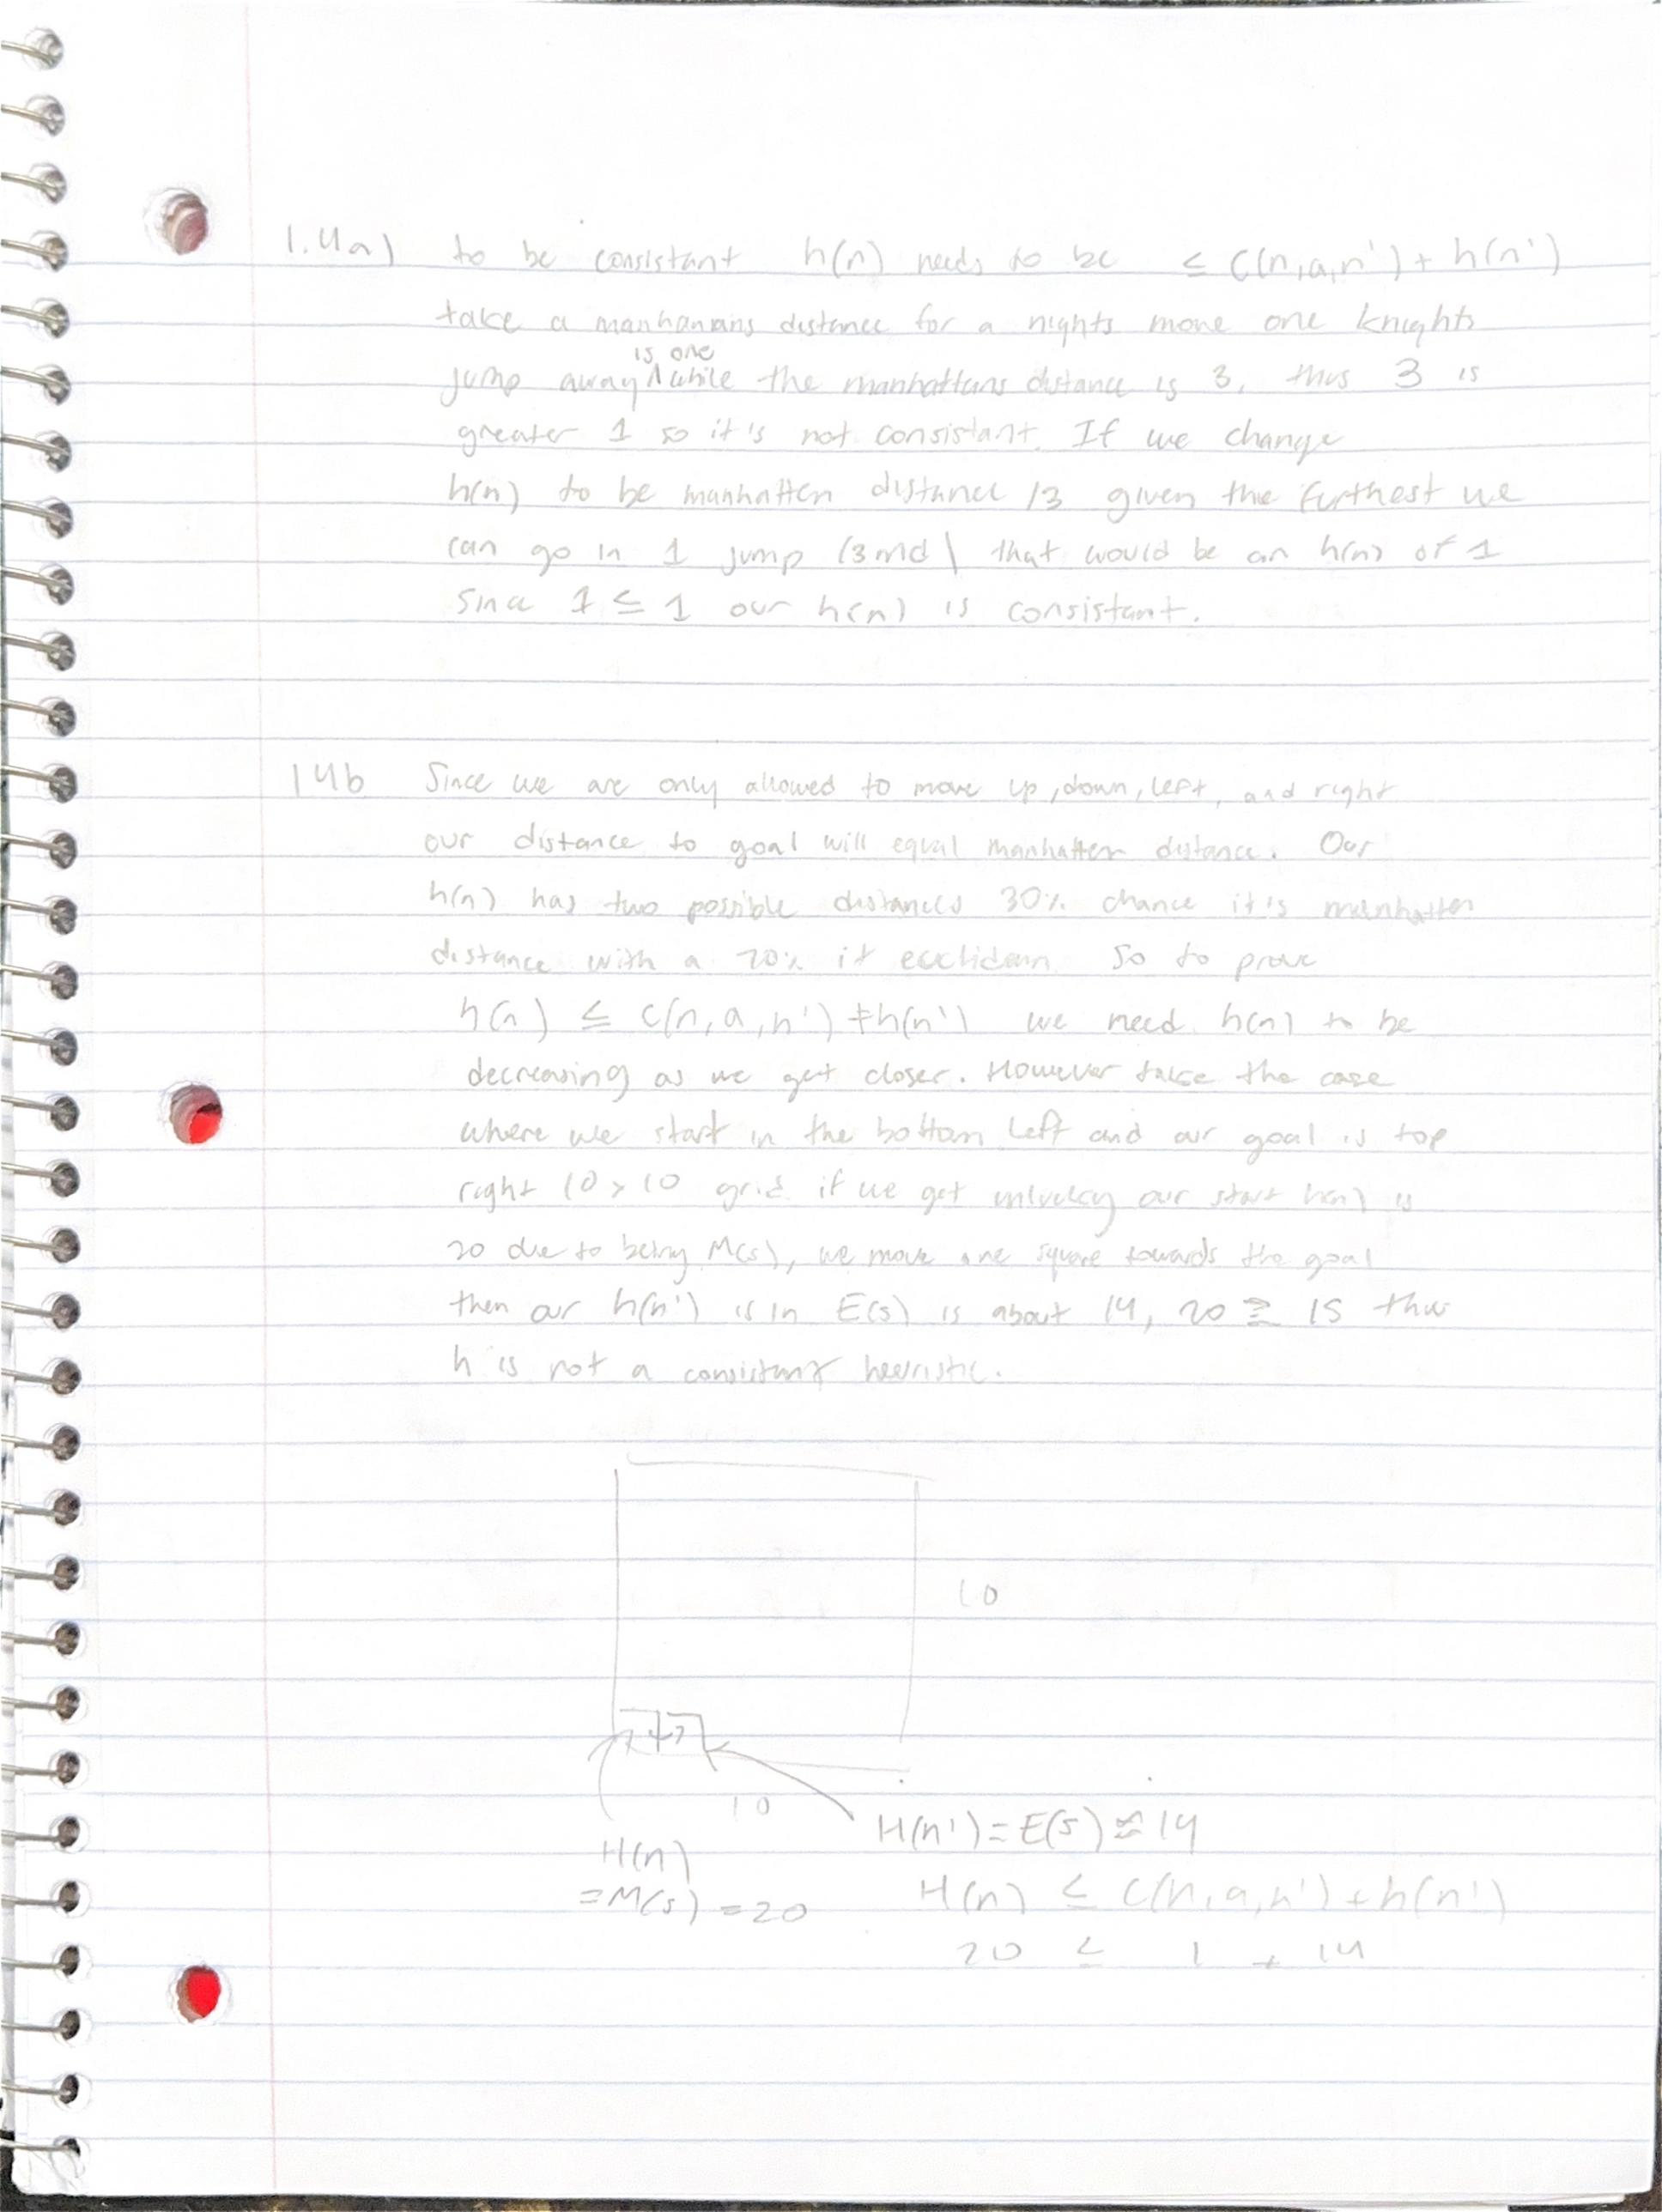 1.4a) to be consistant h(n) needs to be ≤ C(n,a,n') + h(n')
take a manhantans distance for a nights move one knights
is one
jump away ^ while the manhattans distance is 3, thus 3 is
greater 1 so it's not consistant. If we change
h(n) to be manhatten distance /3 given the furthest we
can go in 1 jump (3md) that would be an h(n) of 1
Since 1 ≤ 1 our h(n) is consistant.
14b Since we are only allowed to move up, down, left, and right
our distance to goal will equal manhatten distance. Our
h(n) has two possible distances 30% chance it is manhatten
distance with a 70% it euclidean So to prove
h(n) ≤ c(n,a,n') + h(n') we need h(n) to be
decreasing as we get closer. However take the case
where we start in the bottom left and our goal is top
right 10 x 10 grid if we get unlucky our start h(n) is
20 due to being M(s), we move one square towards the goal
then our h(n') is in E(s) is about 14, 20 ≥ 15 thus
h is not a consistant heuristic.
10
10
H(n') = E(s) ≈ 14
H(n)
= M(s) = 20
H(n) ≤ C(n,a,n') + h(n')
20 ≤ 1 + 14